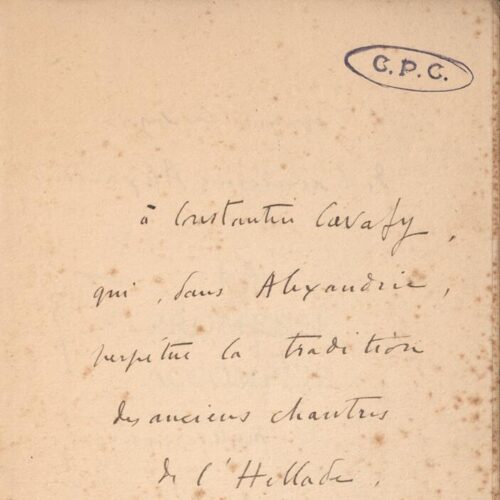 C.P.C.
à Constantin Cavafy,
qui, dans Alexandrie,
perpétue la tradition
des anciens chantres
de l'Hellade.